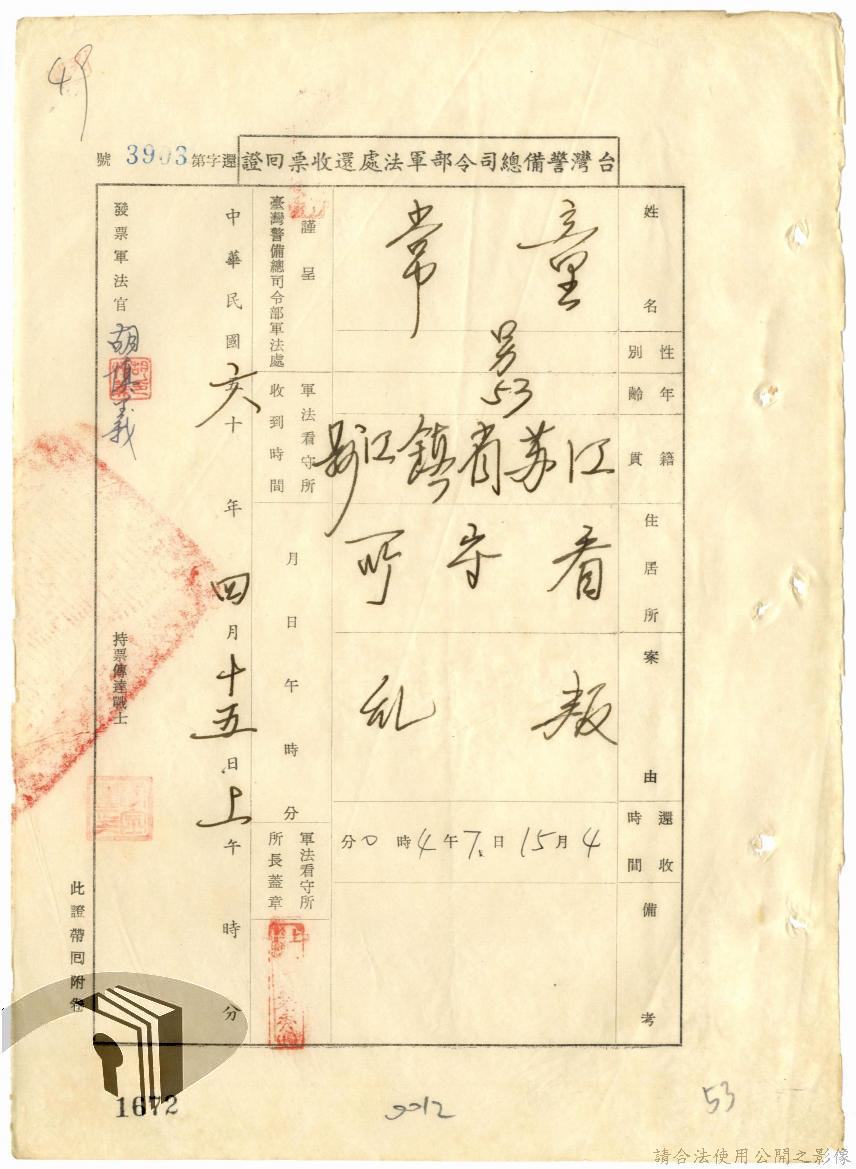 49
台灣警備總司令部軍法處還收票回證
還字第3903號
姓名
童常
性別
男
年齡
53
籍貫
江苏省鎮江縣
住居所
看守所
案由
叛乱
還收時間
4月15日下午4時0分
備考
謹呈
臺灣警備總司令部軍法處
軍法看守所收到時間
月日午時分
軍法看守所所長蓋章
中華民國六十年四月十五日上午時分
發票軍法官
持票傳達戰士
此證帶回附卷
1672
53
請合法使用公開之影像